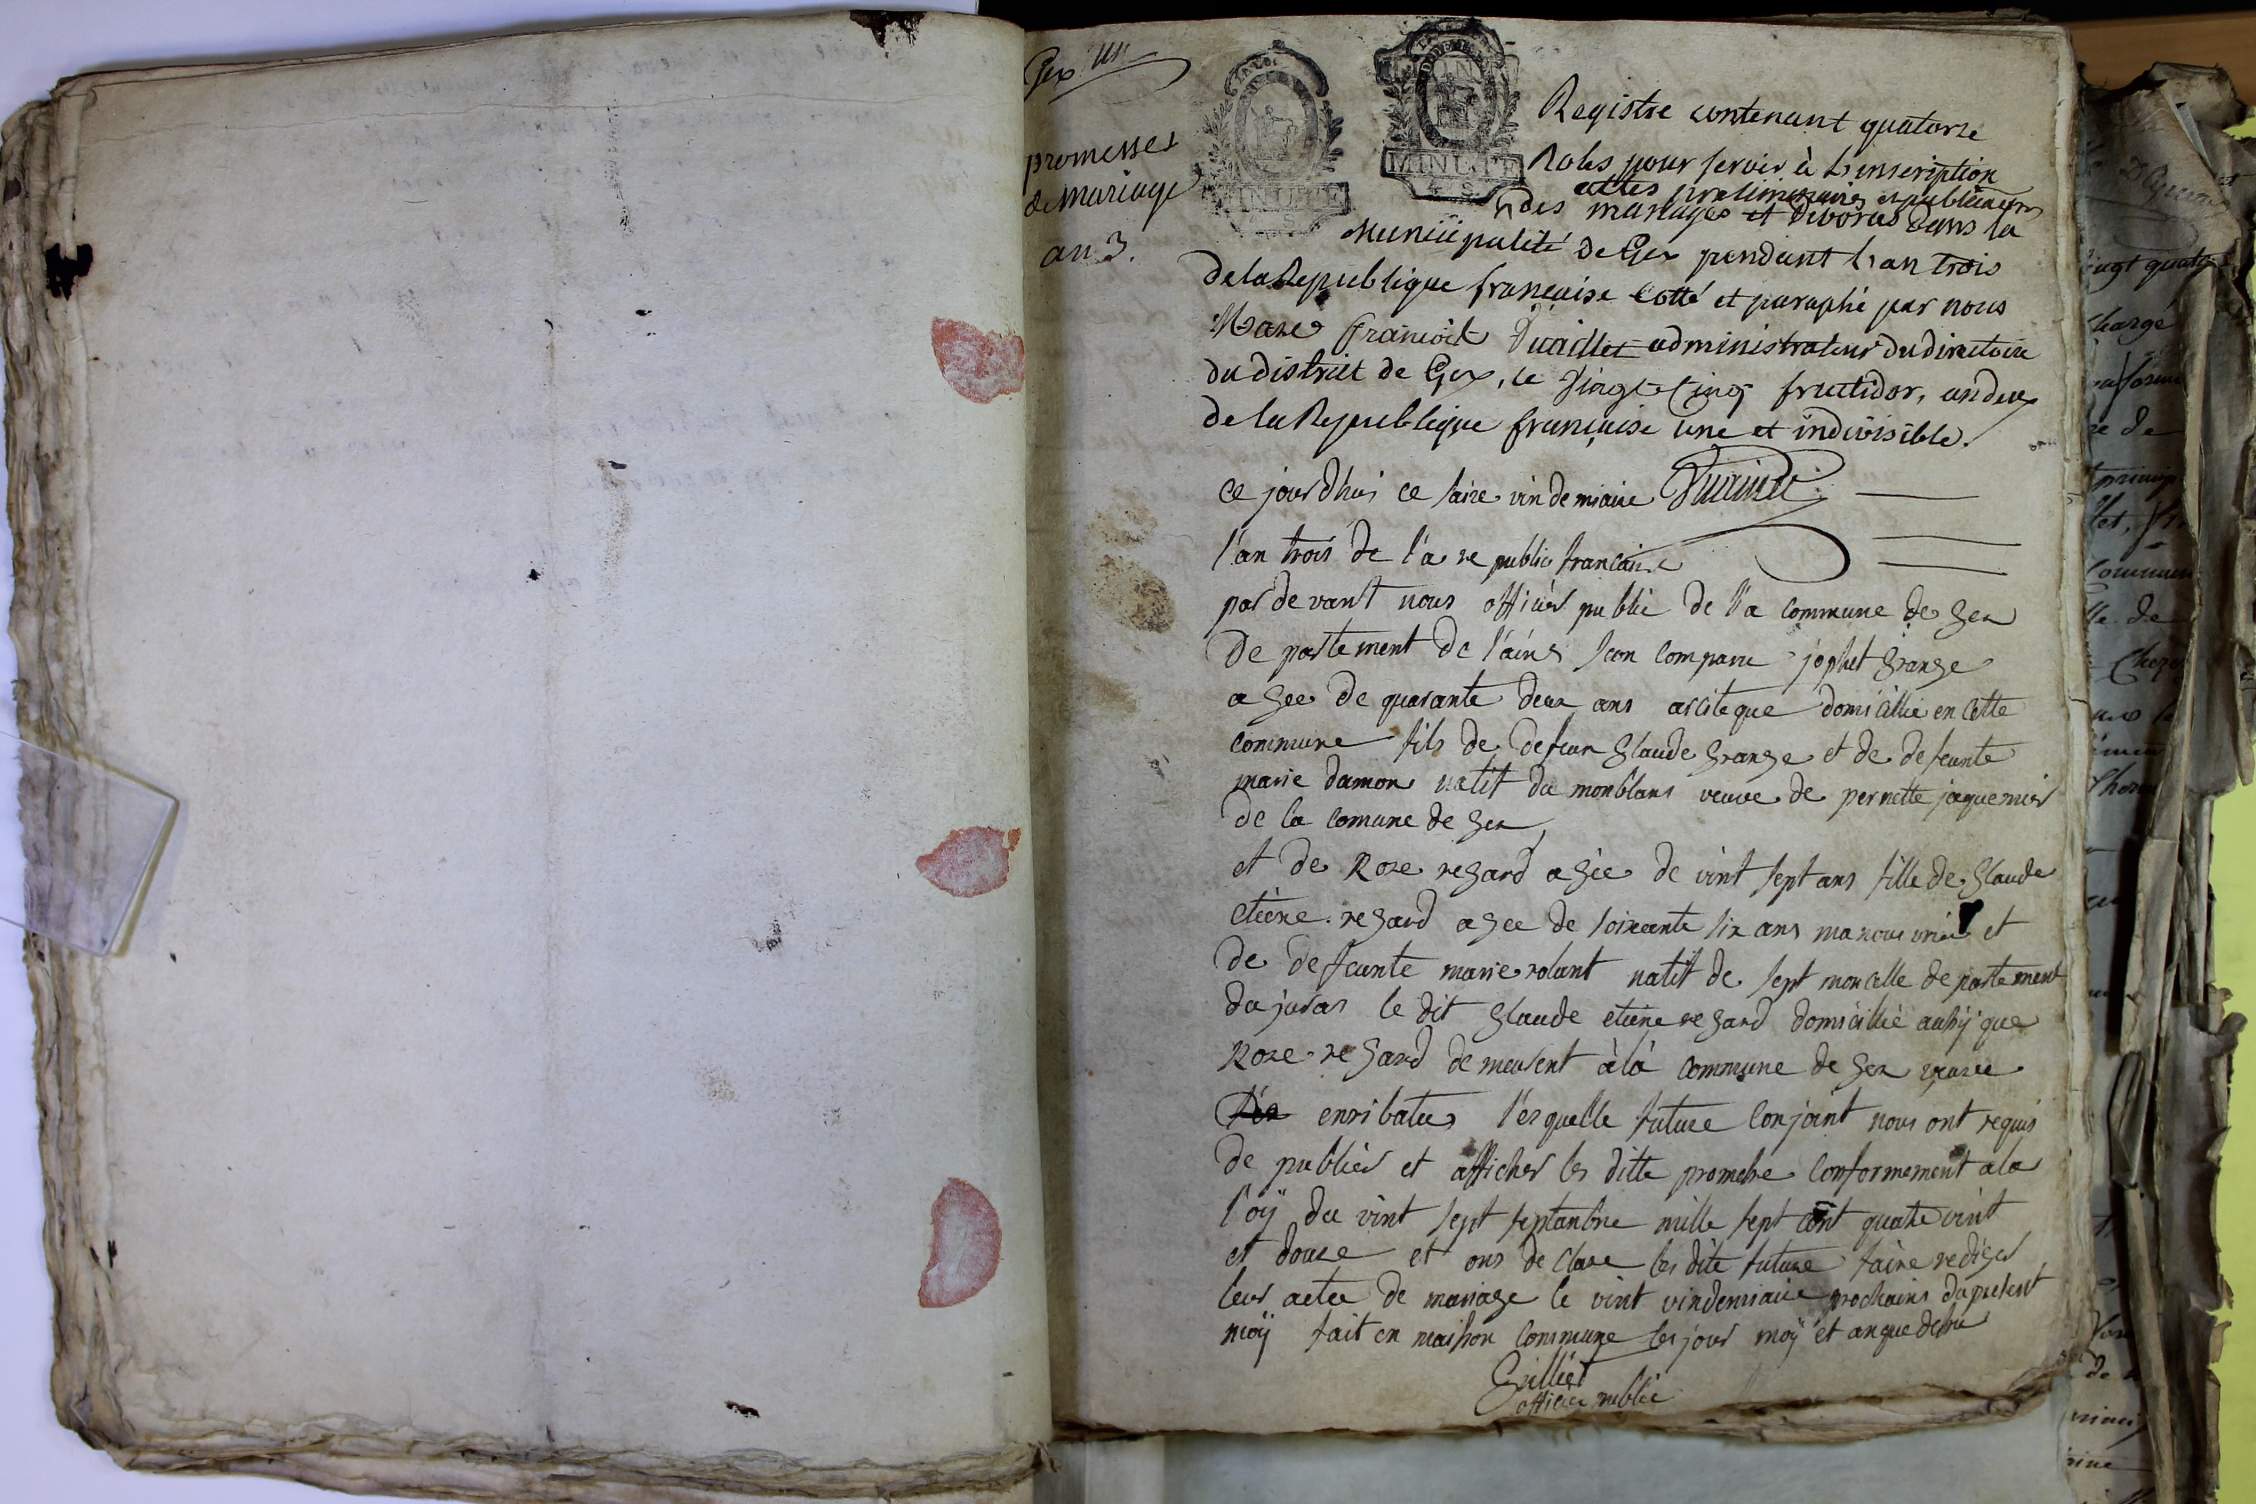 Gex
promesses
de Mariage
an 3.
MINUTE
MINUTE
4. S.
Registre contenant quatorze
Roles pour servir à L'inscription
actes preliminaires et publications
des mariages et divorces dans la
Municipalité de Gex pendant L'an trois
de la Republique française Cotté et paraphé par nous
Marc François administrateur du directoire
du district de Gex, le Vingt-Cinq fructidor, an deux
de la Republique française une et indivisible.
ce jourdhui ce saize vindemiaire
l'an trois de l'a republic francaise
par devant nous officier public de l'a commune de gex
de partement de l'ains son comparu jophet grange
agee de quarante deux ans arciteque domicillié en cette
commune fils de defeun glaude grange et de defeunte
marie damon natif du monblans veuve de pernette jaquemier
de la comune de gex
et de Roze regard agée de vint sept ans fille de glaude
etiène regard agee de soixante six ans manouvrié et
de defeunte marie rolant natif de sept moncelle departement
du juras le dit glaude etiène regard domicillié aussy que
Roze regard demeurent à là commune de gex
l'esquelle future conjoint nous ont requis
de publier et afficher les ditte promesse conformement a la
l'oÿ du vint sept septanbre mille sept cent quatre vint
et douze et ons de clare les dite future faire rediger
leur actee de mariage le vint vindemiaire prochains du present
moÿ fait en maison commune les jour moÿ et an que desus
officier public
vingt quatre
chargé
de
Commun
de